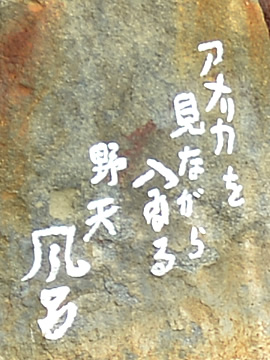 アメリカを
見ながら
入れる
野天
風呂